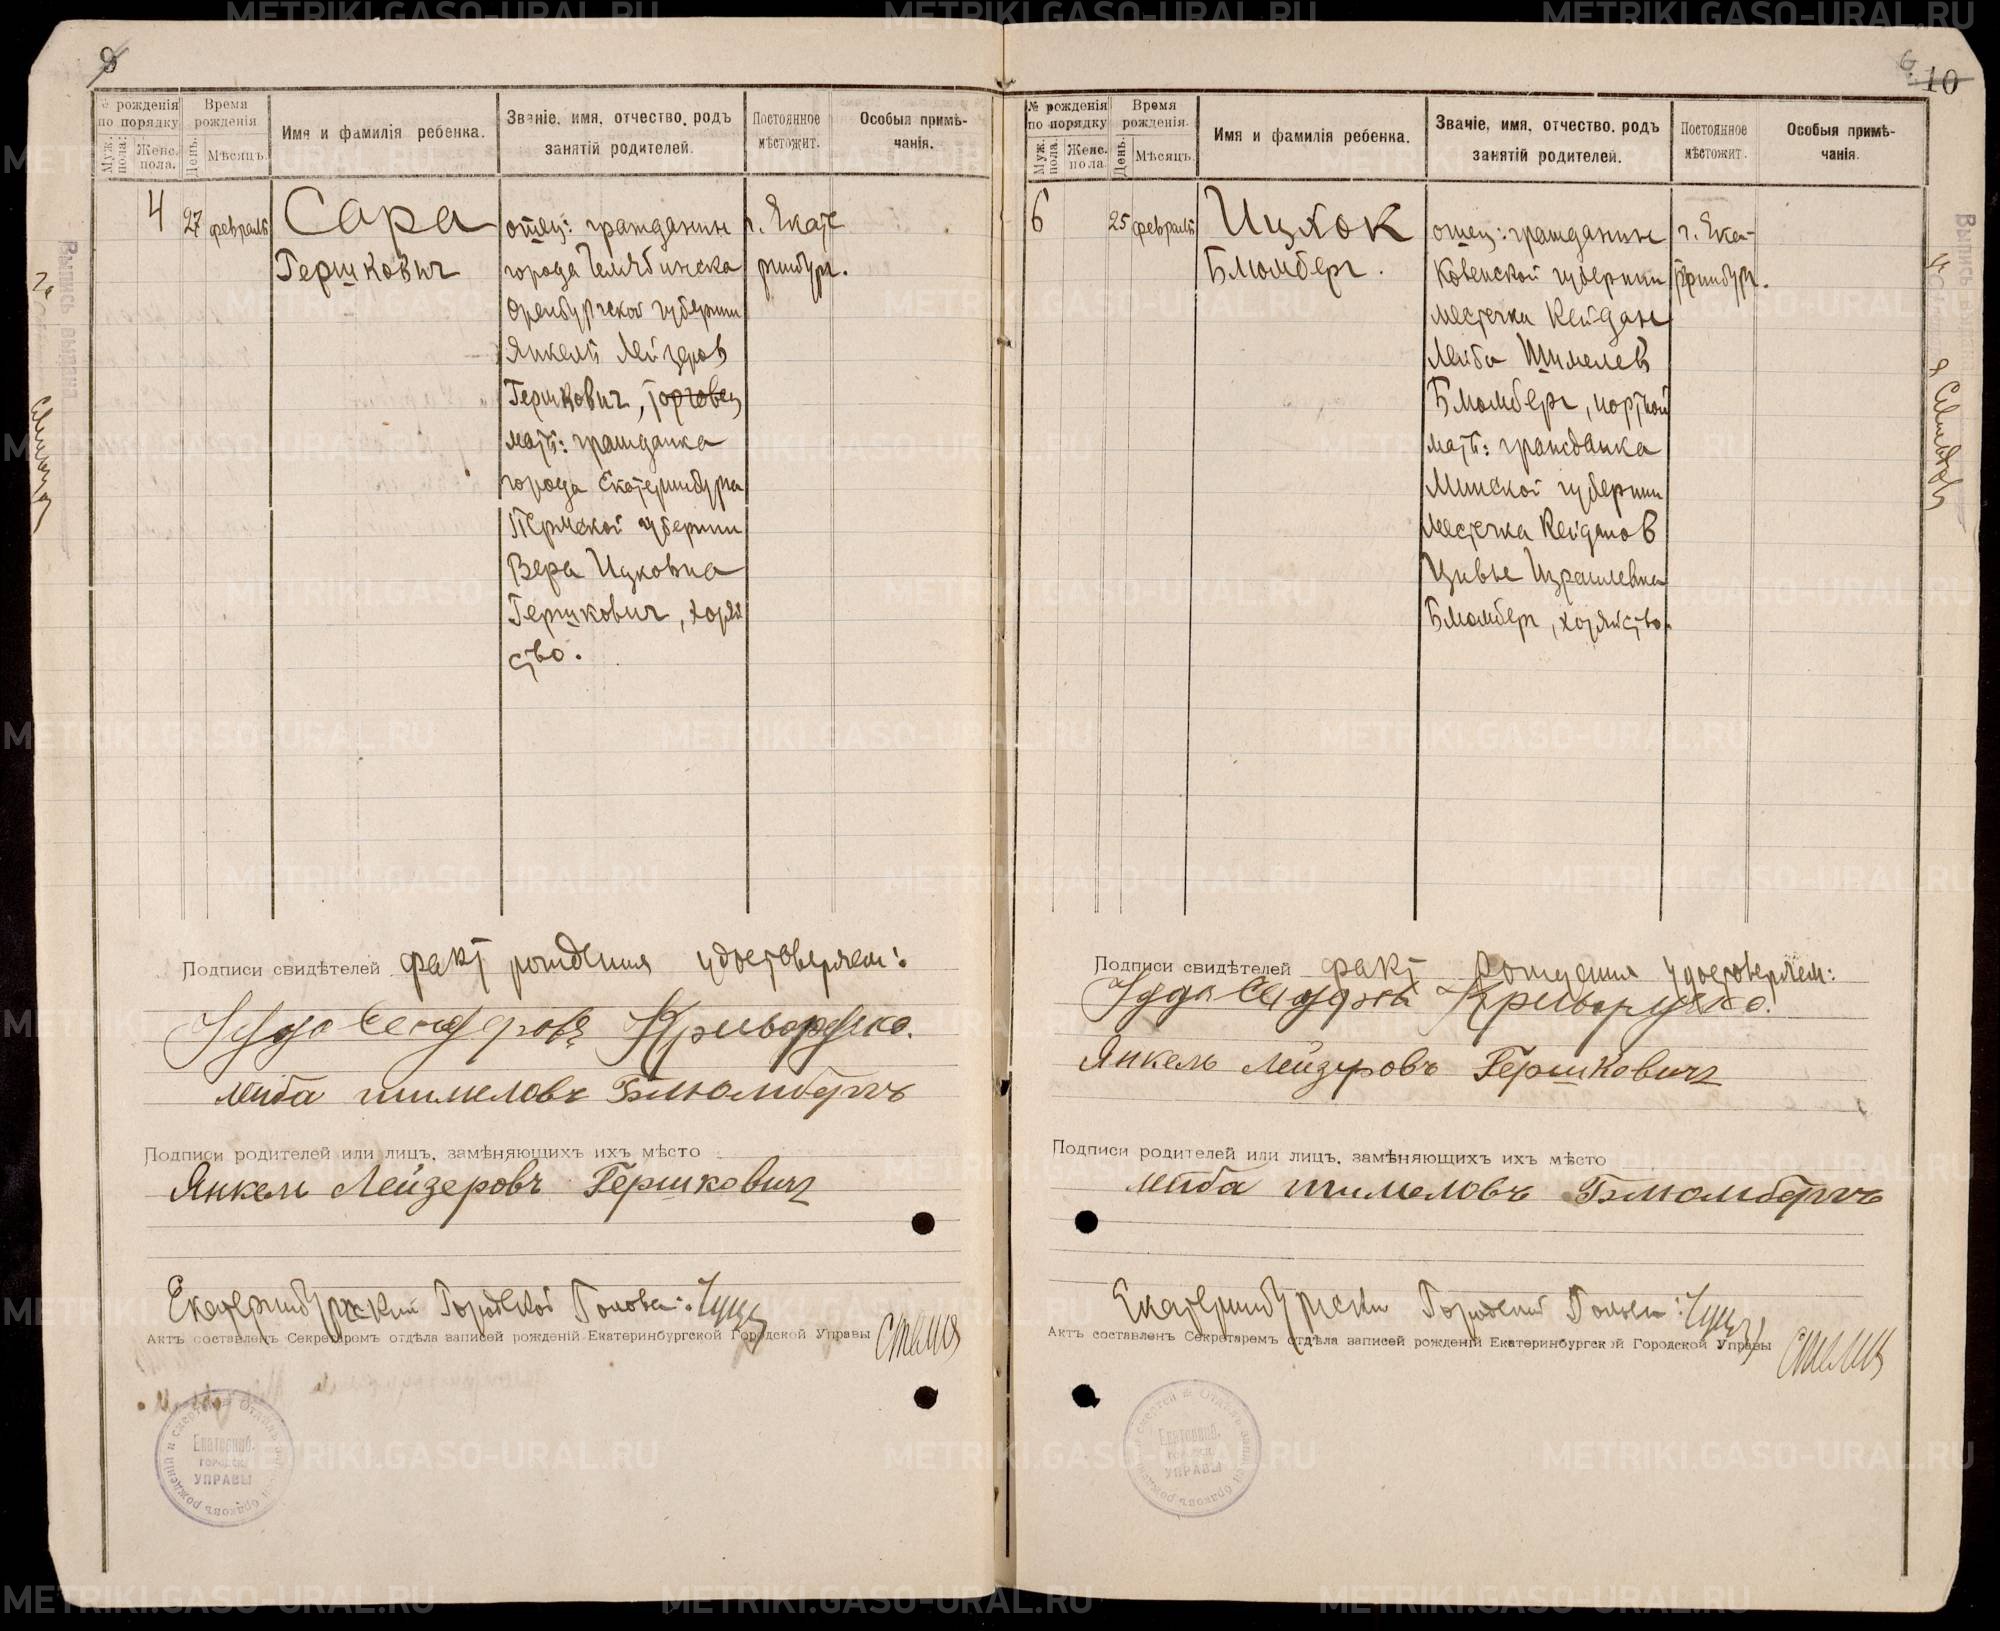 9
№ рожденія по порядку
Муж. пола.
Женс. пола.
Время рожденія
День.
Мѣсяцъ.
Имя и фамилія ребенка.
Званіе, имя, отчество, родъ занятій родителей.
Постоянное мѣстожит.
Особыя примѣчанія.
4
27
февраль
Сара
Гершкович
отец: гражданин
города Челябинска
Оренбургской губернии
Янкель Лейзеров
Гершкович, торговец
мать: гражданка
города Екатеринбурга
Пермской губернии
Вера Ицковна
Гершкович, хозяй
ство.
г. Екате
ринбург.
Подписи свидѣтелей факт рождения удостоверяем:
Иуда Сендеровъ Криворучко.
Лейба Шимеловъ Блюмбергъ
Подписи родителей или лицъ, замѣняющихъ ихъ мѣсто
Янкель Лейзеровъ Гершковичъ
Екатеринбургский Городской Голова:
Актъ составленъ Секретаремъ отдѣла записей рожденій Екатеринбургской Городской Управы
Екатеринб.
городск.
УПРАВЫ
Выпись выдана
6
10
№ рожденія по порядку
Муж. пола.
Женс. пола
Время рожденія.
День.
Мѣсяцъ.
Имя и фамилія ребенка.
Званіе, имя, отчество, родъ занятій родителей.
Постоянное мѣстожит.
Особыя примѣчанія.
6
25
февраль
Ицхок
Блюмберг.
отец: гражданин
Ковенской губернии
местечка Кейдан
Лейба Шимелев
Блюмберг, портной
мать: гражданка
Минской губернии
местечка Кейданов
Цивье Израилевна
Блюмберг, хозяйство.
г. Ека-
теринбург.
Подписи свидѣтелей факт рождения удостоверяем:
Иуда Сендеров Криворучко.
Янкель Лейзеровъ Гершковичъ
Подписи родителей или лицъ, замѣняющихъ ихъ мѣсто
Лейба Шимеловъ Блюмбергъ
Екатеринбургский Городской Голова:
Актъ составленъ Секретаремъ отдѣла записей рожденій Екатеринбургской Городской Управы
Екатеринб.
городск.
УПРАВЫ
METRIKI.GASO-URAL.RU